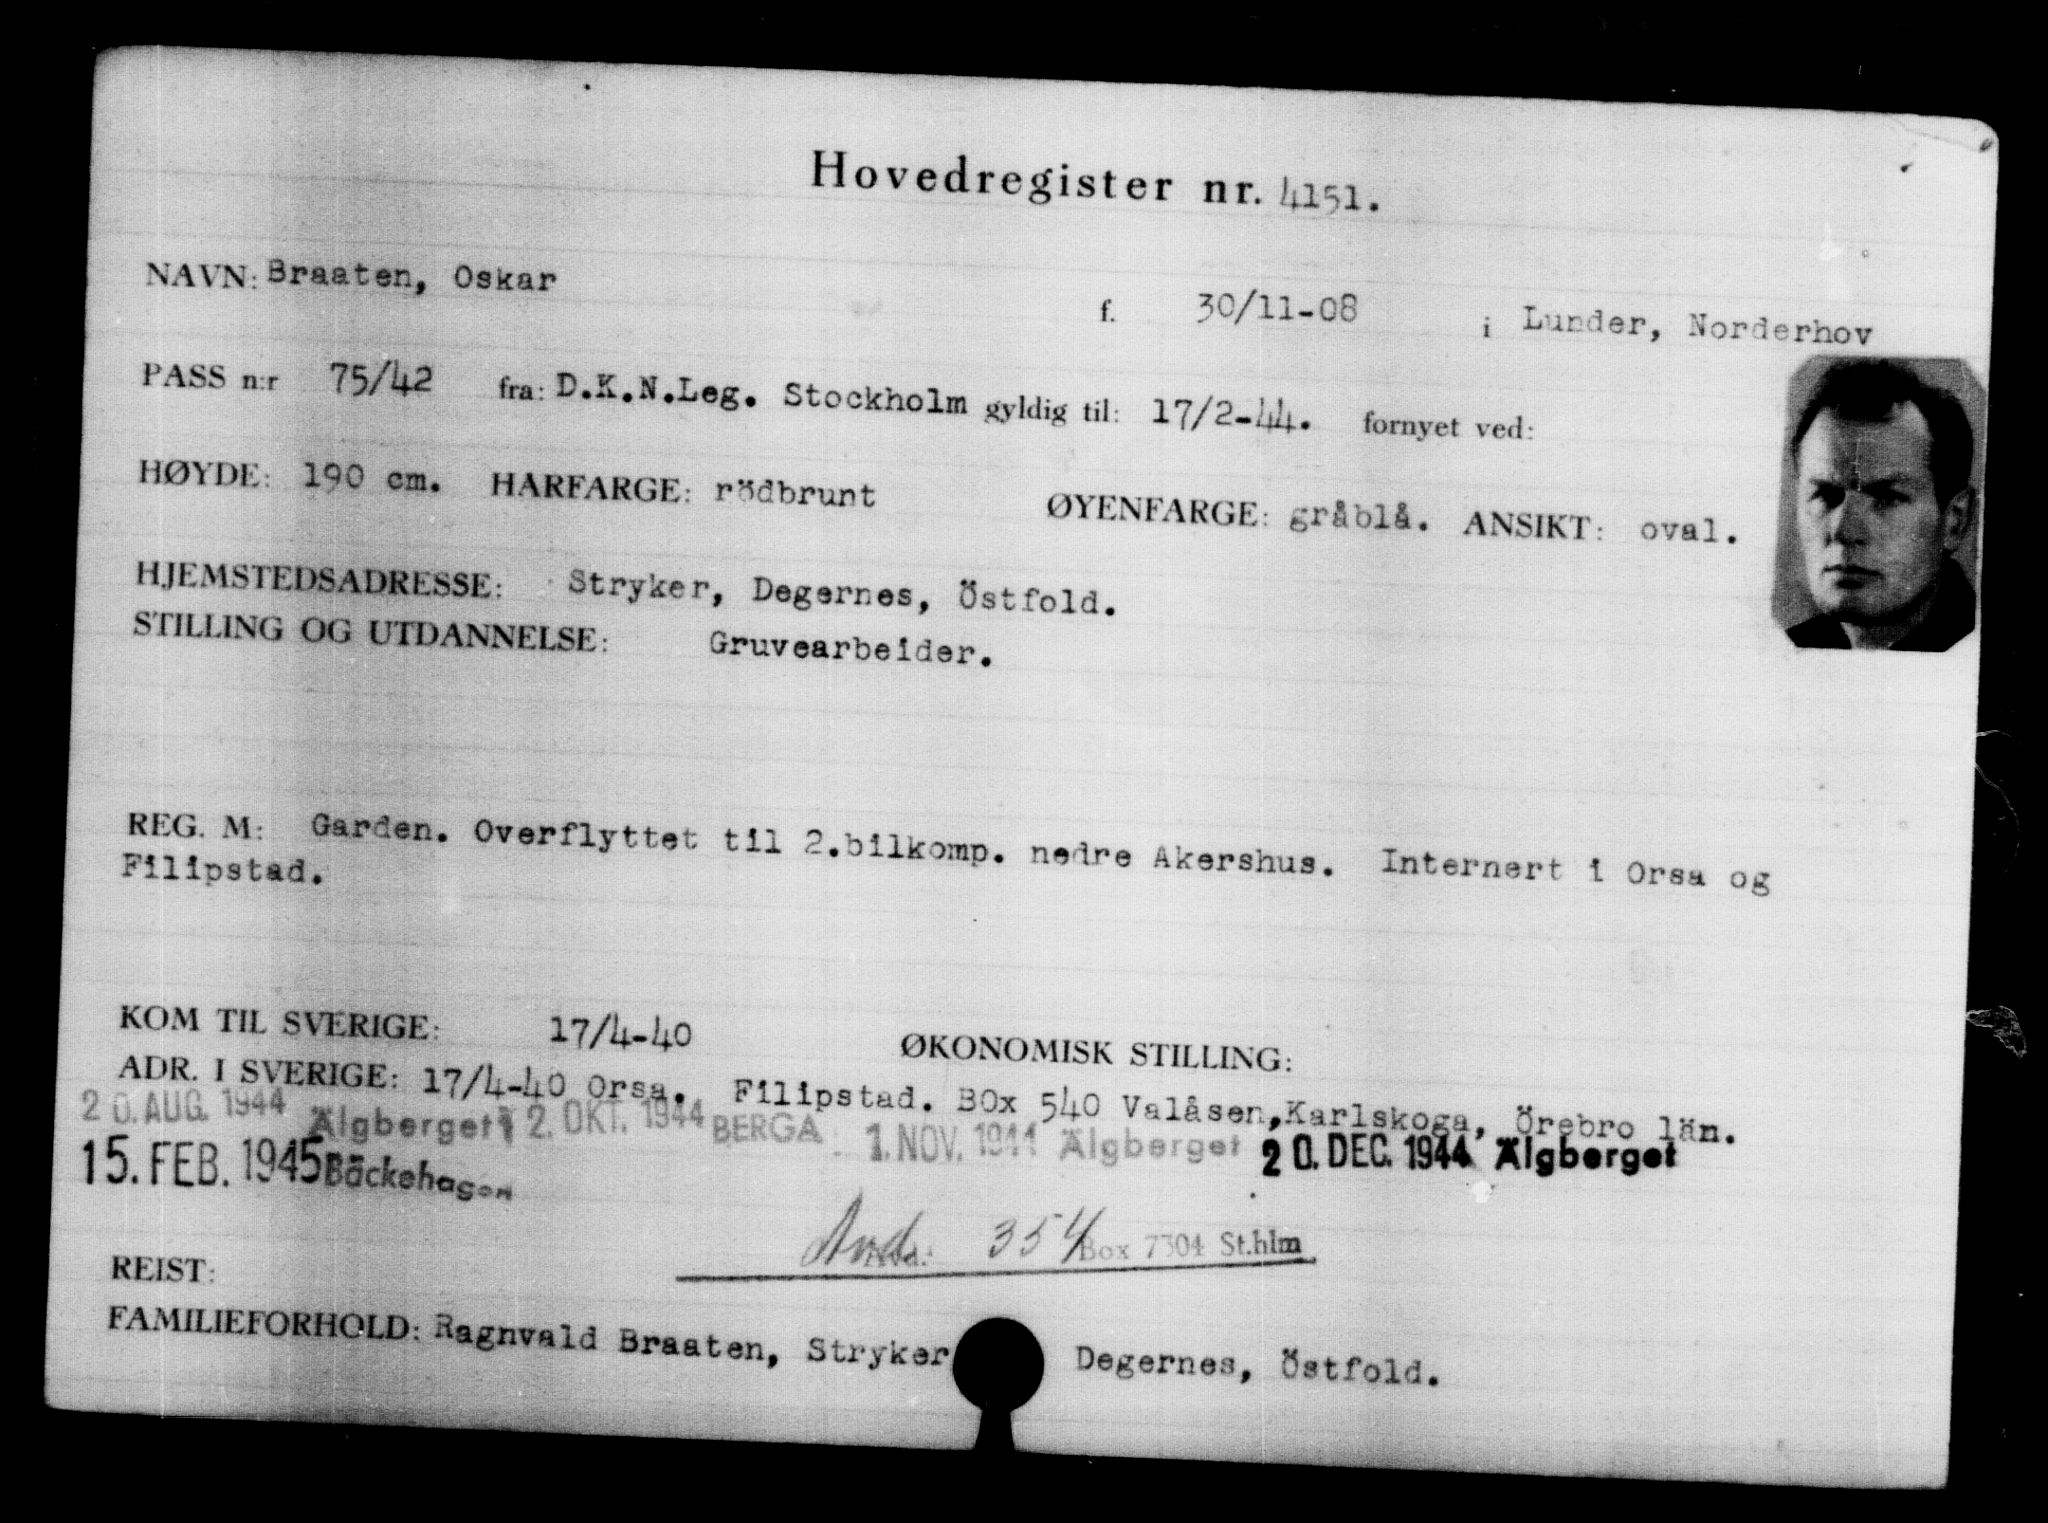 Hovedregister nr. 4151.
NAVN: Braaten, Oskar f. 30/11-08 i Lunder, Norderhov
PASS n:r 75/42 fra: D.K.N.Leg. Stockholm gyldig til: 17/2-44. fornyet ved:
HØYDE: 190 cm. HARFARGE: rödbrunt ØYENFARGE: gråblå. ANSIKT: oval.
HJEMSTEDSADRESSE: Stryker, Degernes, Östfold.
STILLING OG UTDANNELSE: Gruvearbeider.
REG. M: Garden. Overflyttet til 2.bilkomp. nedre Akershus. Internert i Orsa og
Filipstad.
KOM TIL SVERIGE: 17/4-40 ØKONOMISK STILLING:
ADR. I SVERIGE: 17/4-40 Orsa. Filipstad. BOx 540 Valåsen,Karlskoga, Örebro län.
20. AUG. 1944 Älgberget 12. OKT. 1944 BERGA 1. NOV. 1944 Älgberget 20. DEC. 1944 Älgberget
15. FEB. 1945 Bäckehagen
354 Box 7304 St.hlm
REIST:
FAMILIEFORHOLD: Ragnvald Braaten, Stryker Degernes, Östfold.